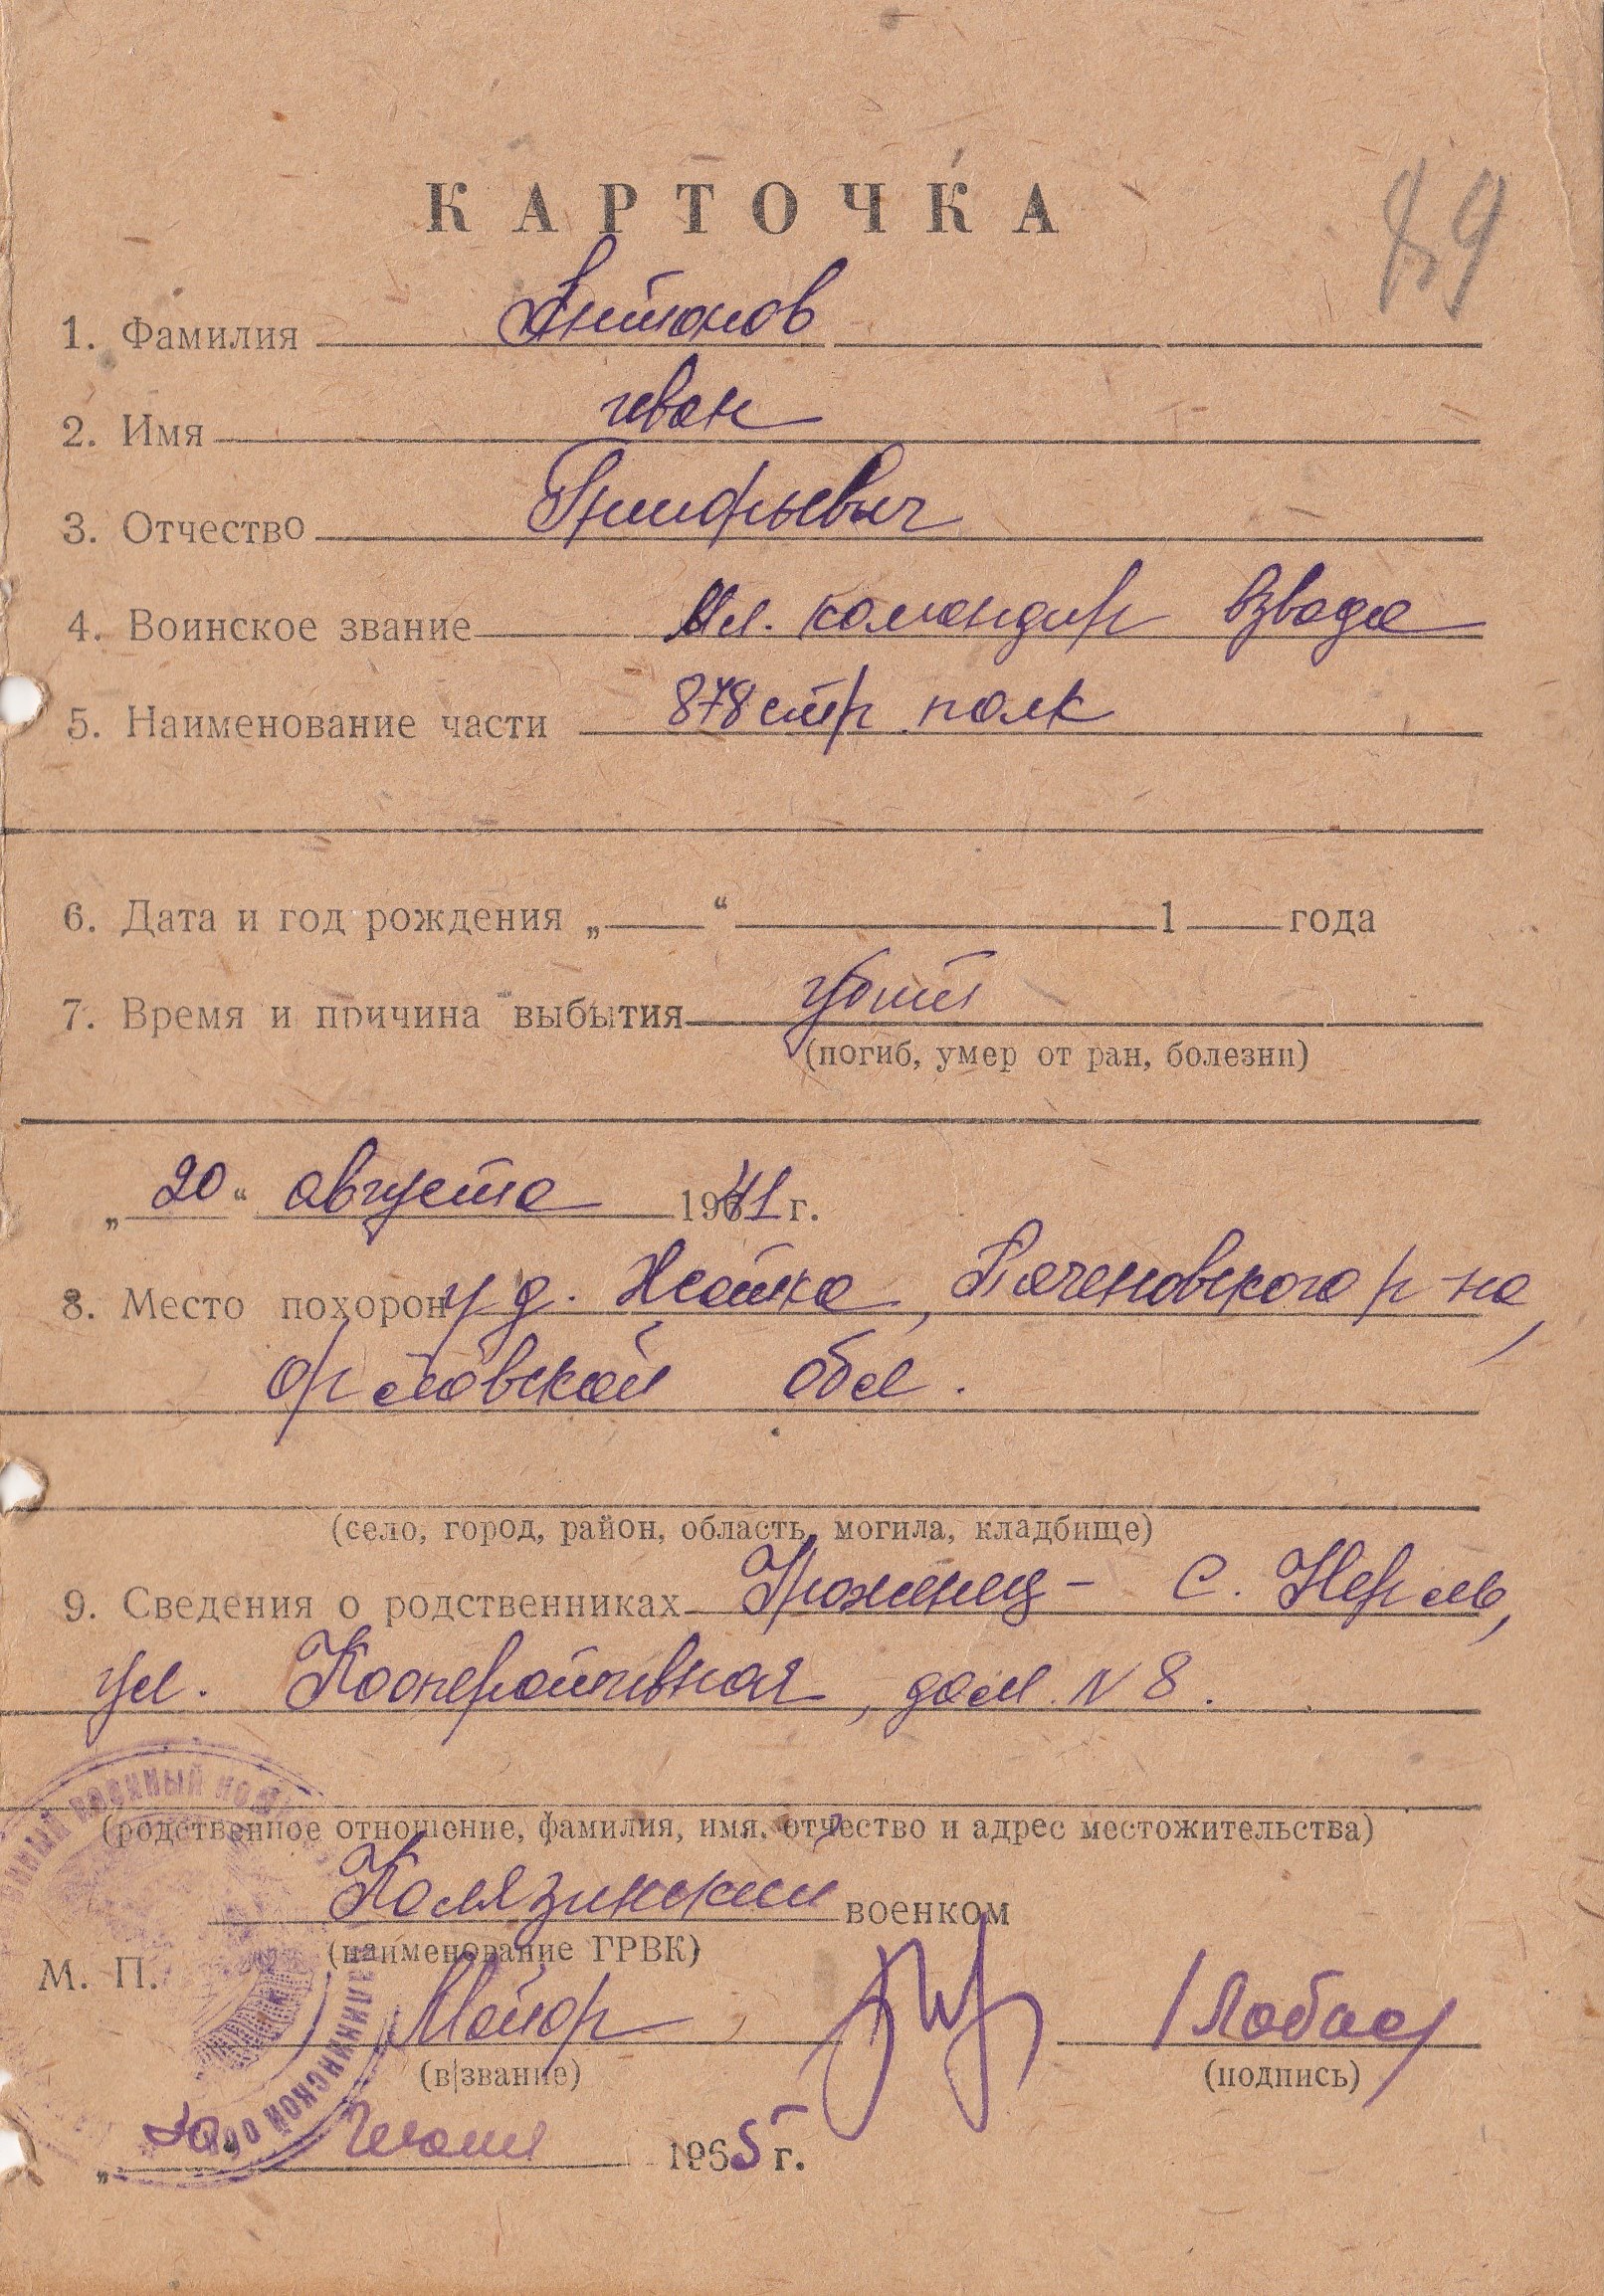 89
КАРТОЧКА
1. Фамилия Антонов
2. Имя Иван
3. Отчество
4. Воинское звание Мл. командир взвода
5. Наименование части 878 стр полк
6. Дата и год рождения „ “ 1 года
7. Время и причина выбытия убит
(погиб, умер от ран, болезни)
„20“ августа 1941 г.
8. Место похорон у д. Хватка, Поченовского р-на,
обл.
(село, город, район, область, могила, кладбище)
9. Сведения о родственниках с. Нерль,
ул. Кооперативная, дом N 8.
(родственное отношение, фамилия, имя, отчество и адрес местожительства)
Калязинский военком
(наименование ГРВК)
М. П.
Майор /Лобас/
(в/звание) (подпись)
„ июня 1965 г.